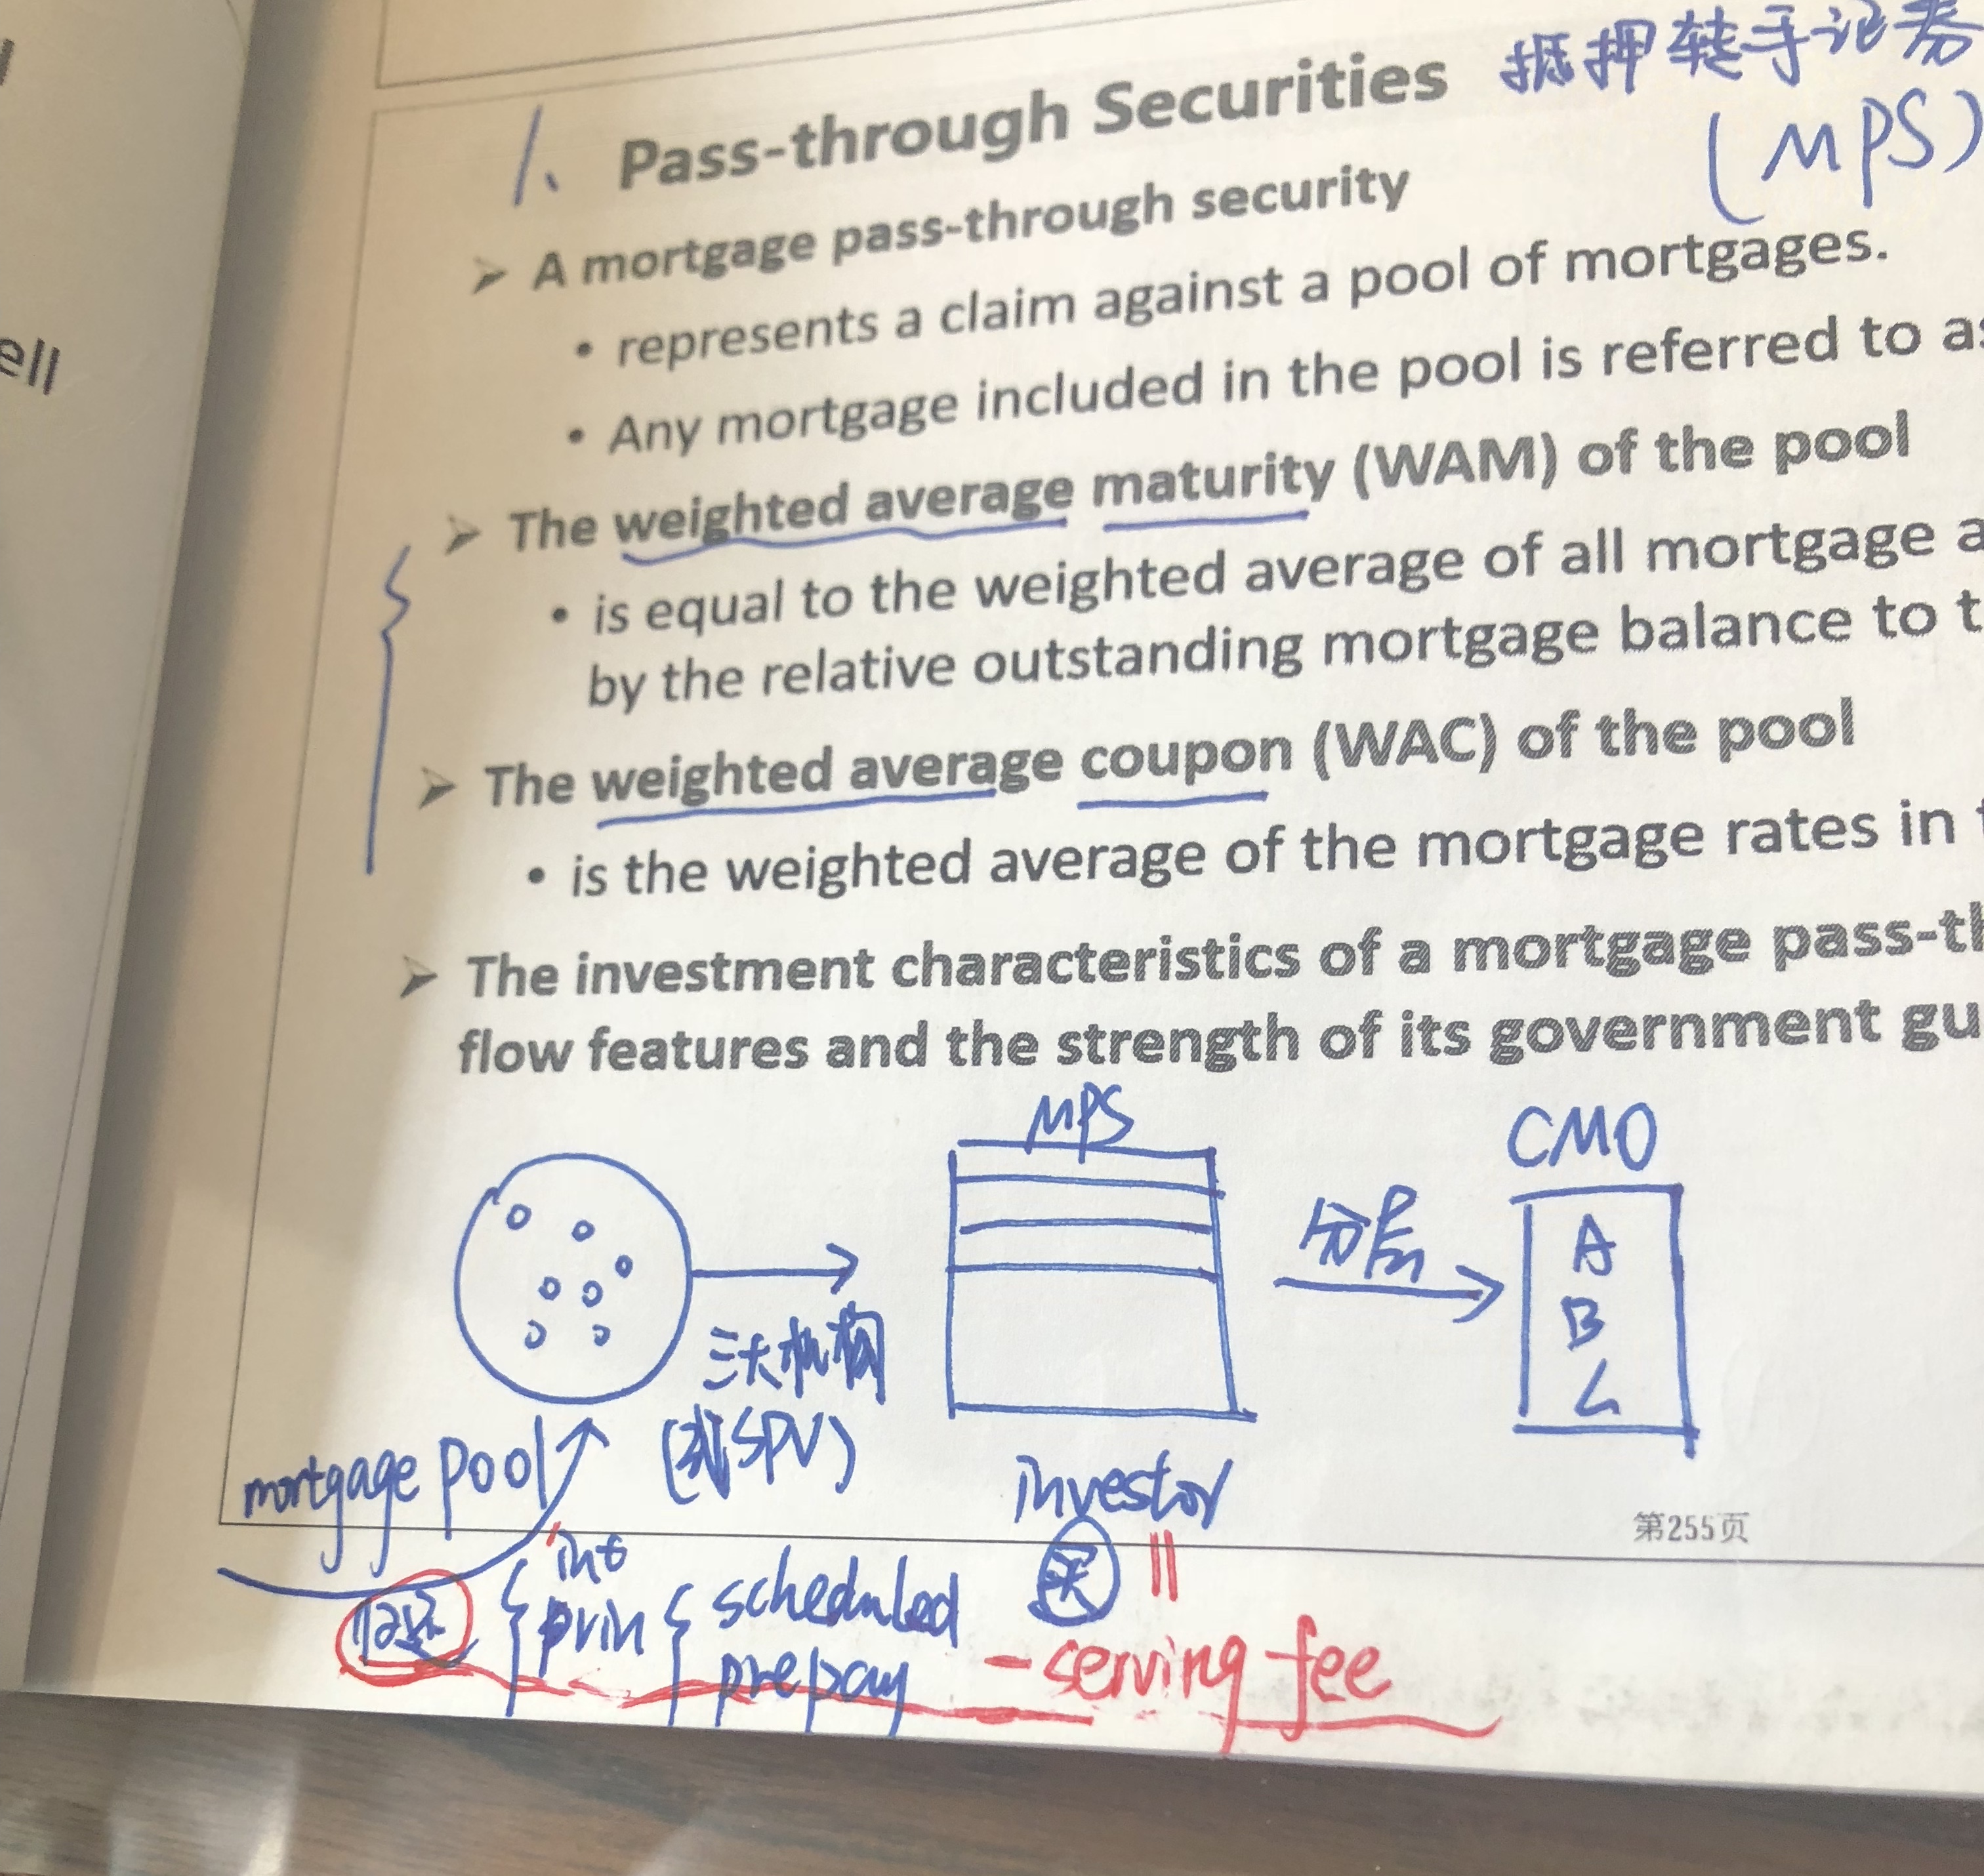 ell
抵押转手证券
1. Pass-through Securities
(MPS)
➤ A mortgage pass-through security
• represents a claim against a pool of mortgages.
• Any mortgage included in the pool is referred to as
➤ The weighted average maturity (WAM) of the pool
• is equal to the weighted average of all mortgage a
by the relative outstanding mortgage balance to t
➤ The weighted average coupon (WAC) of the pool
• is the weighted average of the mortgage rates in t
➤ The investment characteristics of a mortgage pass-th
flow features and the strength of its government gu
MPS
CMO
分层
A
B
C
三大机构
(或SPV)
mortgage pool
investor
第255页
int
买
prin
scheduled
prepay
- serving fee